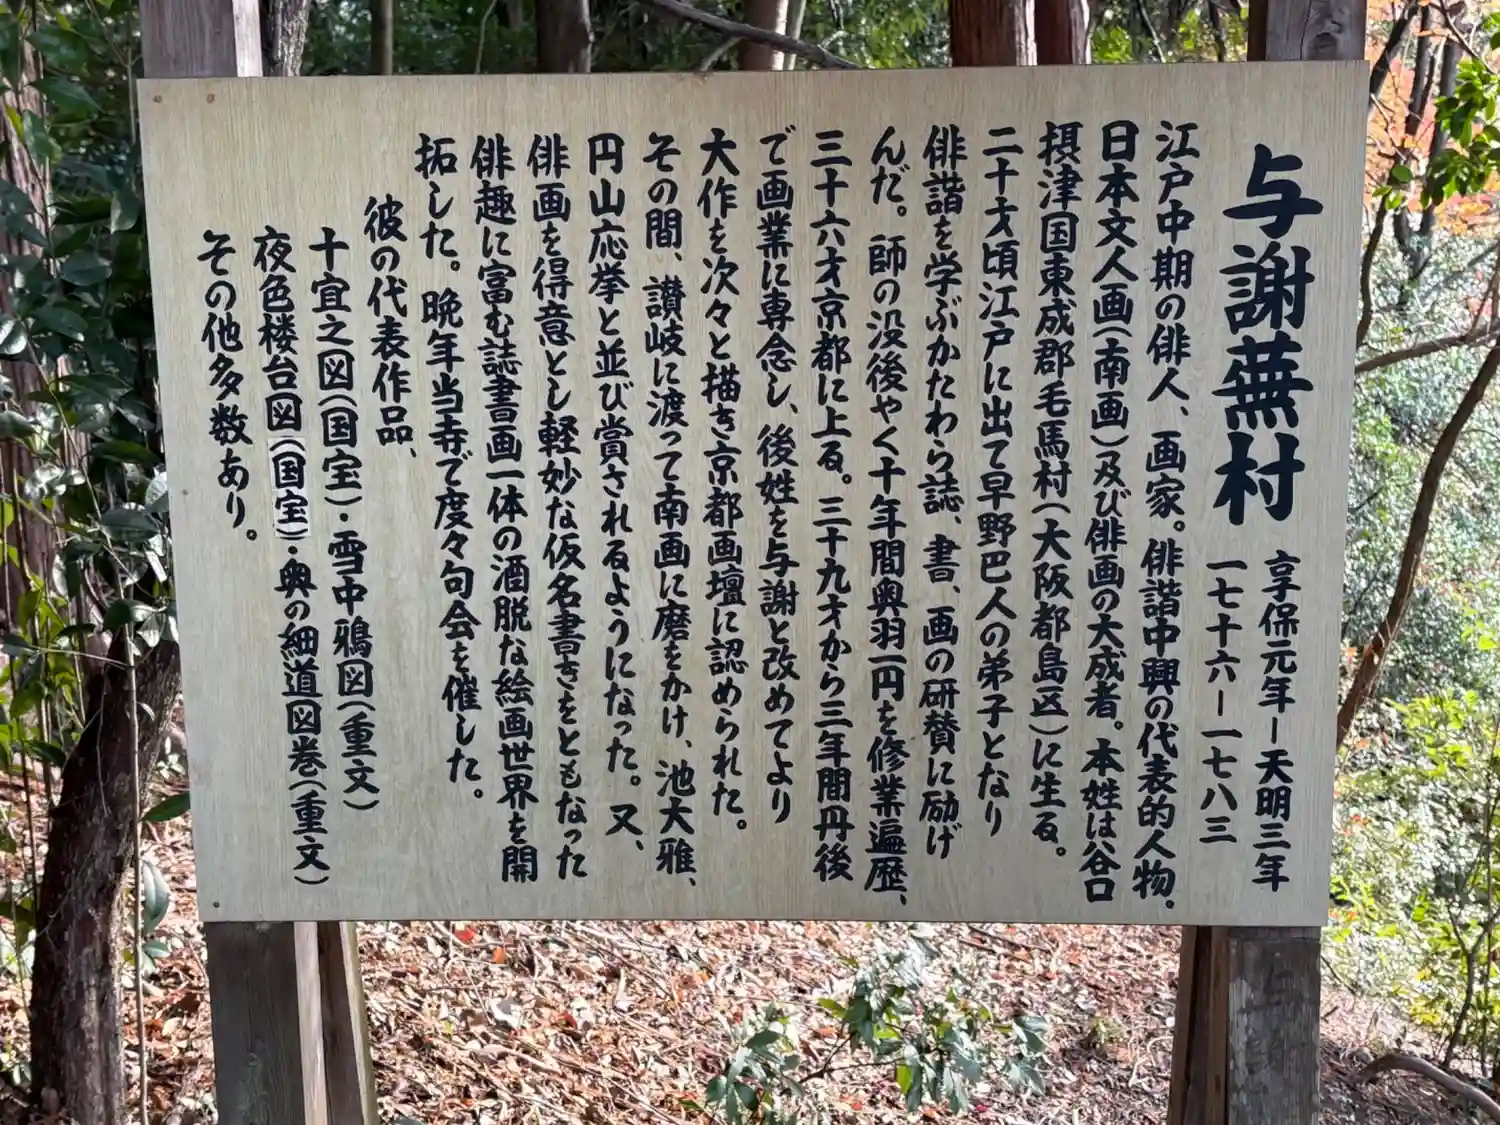 与謝蕪村
享保元年ー天明三年
一七十六ー一七八三
江戸中期の俳人、画家。俳諧中興の代表的人物。
日本文人画(南画)及び俳画の大成者。本姓は谷口
摂津国東成郡毛馬村(大阪都島区)に生る。
二十才頃江戸に出て早野巴人の弟子となり
俳諧を学ぶかたわら誌、書、画の研賛に励げ
んだ。師の没後やく十年間奥羽一円を修業遍歴、
三十六才京都に上る。三十九才から三年間丹後
で画業に専念し、後姓を与謝と改めてより
大作を次々と描き京都画壇に認められた。
その間、讃岐に渡って南画に磨をかけ、池大雅、
円山応挙と並び賞されるようになった。又、
俳画を得意とし軽妙な仮名書きをともなった
俳趣に富む誌書画一体の酒脱な絵画世界を開
拓した。晩年当寺で度々句会を催した。
彼の代表作品、
十宜之図(国宝)・雪中鴉図(重文)
夜色楼台図(国宝)・奥の細道図巻(重文)
その他多数あり。